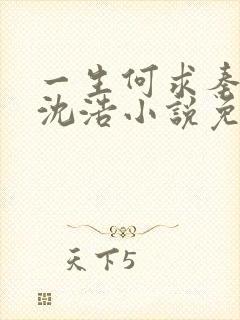 一生何求秦
沈浩小說免
天下5